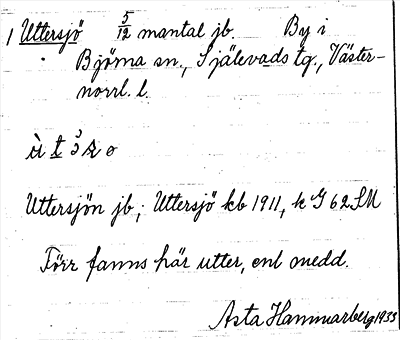 1 Uttersjö 5/12 mantal jb. By i
Björna sn., Själevads tg., Väster-
norrl. l.
Uttersjön jb; Uttersjö kb 1911, k G 62 SM
Förr fanns här utter, enl medd.
Asta Hammarberg 1933